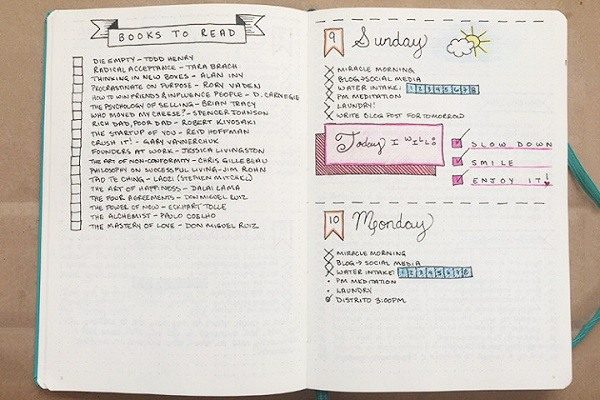 BOOKS TO READ
DIE EMPTY – TODD HENRY
RADICAL ACCEPTANCE – TARA BRACH
THINKING IN NEW BOXES – ALAN INY
PROCRASTINATE ON PURPOSE – RORY VADEN
HOW TO WIN FRIENDS & INFLUENCE PEOPLE – D. CARNEGIE
THE PSYCHOLOGY OF SELLING – BRIAN TRACY
WHO MOVED MY CHEESE? – SPENCER JOHNSON
RICH DAD, POOR DAD – ROBERT KIYOSAKI
THE STARTUP OF YOU – REID HOFFMAN
CRUSH IT! – GARY VAYNERCHUK
FOUNDERS AT WORK – JESSICA LIVINGSTON
THE ART OF NON-CONFORMITY – CHRIS GILLEBEAU
PHILOSOPHY ON SUCCESSFUL LIVING – JIM ROHN
TAO TE CHING – LAOZI (STEPHEN MITCHEL)
THE ART OF HAPPINESS – DALAI LAMA
THE FOUR AGREEMENTS – DON MIGUEL RUIZ
THE POWER OF NOW – ECKHART TOLLE
THE ALCHEMIST – PAULO COELHO
THE MASTERY OF LOVE – DON MIGUEL RUIZ
9 Sunday
MIRACLE MORNING
BLOG → SOCIAL MEDIA
WATER INTAKE: 1 2 3 4 5 6 7 8
PM MEDITATION
LAUNDRY!
WRITE BLOG POST FOR TOMORROW
Today I WILL:
SLOW DOWN
SMILE
ENJOY IT!
10 Monday
MIRACLE MORNING
BLOG → SOCIAL MEDIA
WATER INTAKE: 1 2 3 4 5 6 7 8
PM MEDITATION
LAUNDRY
DISTRITO 3:00PM